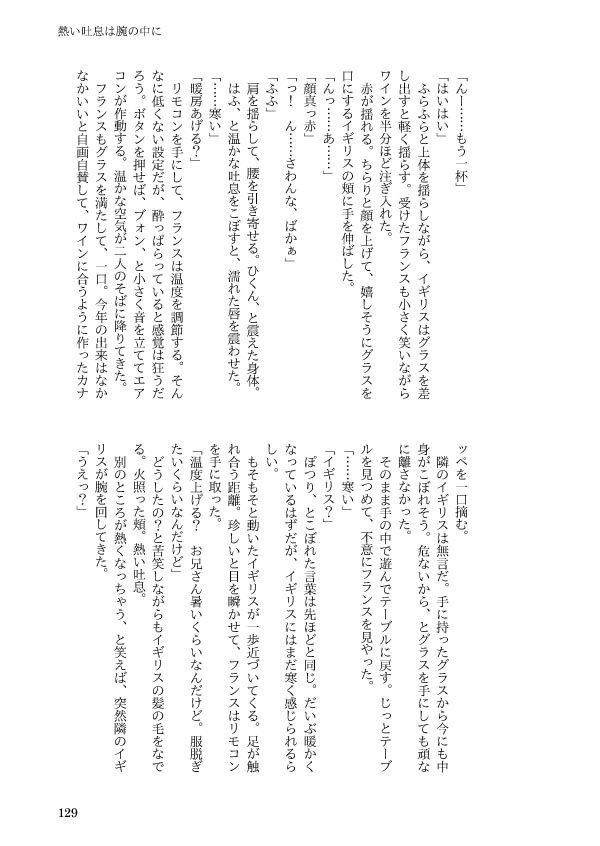 熱い吐息は腕の中に
「んー……もう一杯」
「はいはい」
　ふらふらと上体を揺らしながら、イギリスはグラスを差
し出すと軽く揺らす。受けたフランスも小さく笑いながら
ワインを半分ほど注ぎ入れた。
　赤が揺れる。ちらりと顔を上げて、嬉しそうにグラスを
口にするイギリスの頬に手を伸ばした。
「んっ……あ……」
「顔真っ赤」
「っ！　ん……さわんな、ばかぁ」
「ふふ」
　肩を揺らして、腰を引き寄せる。ひくん、と震えた身体。
　はふ、と温かな吐息をこぼすと、濡れた唇を震わせた。
「……寒い」
「暖房あげる？」
　リモコンを手にして、フランスは温度を調節する。そん
なに低くない設定だが、酔っぱらっていると感覚は狂うだ
ろう。ボタンを押せば、ブォン、と小さく音を立ててエア
コンが作動する。温かな空気が二人のそばに降りてきた。
　フランスもグラスを満たして、一口。今年の出来はなか
なかいいと自画自賛して、ワインに合うように作ったカナ
ッペを一口摘む。
　隣のイギリスは無言だ。手に持ったグラスから今にも中
身がこぼれそう。危ないから、とグラスを手にしても頑な
に離さなかった。
　そのまま手の中で遊んでテーブルに戻す。じっとテーブ
ルを見つめて、不意にフランスを見やった。
「……寒い」
「イギリス？」
　ぽつり、とこぼれた言葉は先ほどと同じ。だいぶ暖かく
なっているはずだが、イギリスにはまだ寒く感じられるら
しい。
　もそもそと動いたイギリスが一歩近づいてくる。足が触
れ合う距離。珍しいと目を瞬かせて、フランスはリモコン
を手に取った。
「温度上げる？　お兄さん暑いくらいなんだけど。服脱ぎ
たいくらいなんだけど」
　どうしたの？と苦笑しながらもイギリスの髪の毛をなで
る。火照った頬。熱い吐息。
　別のところが熱くなっちゃう、と笑えば、突然隣のイギ
リスが腕を回してきた。
「うえっ？」
129